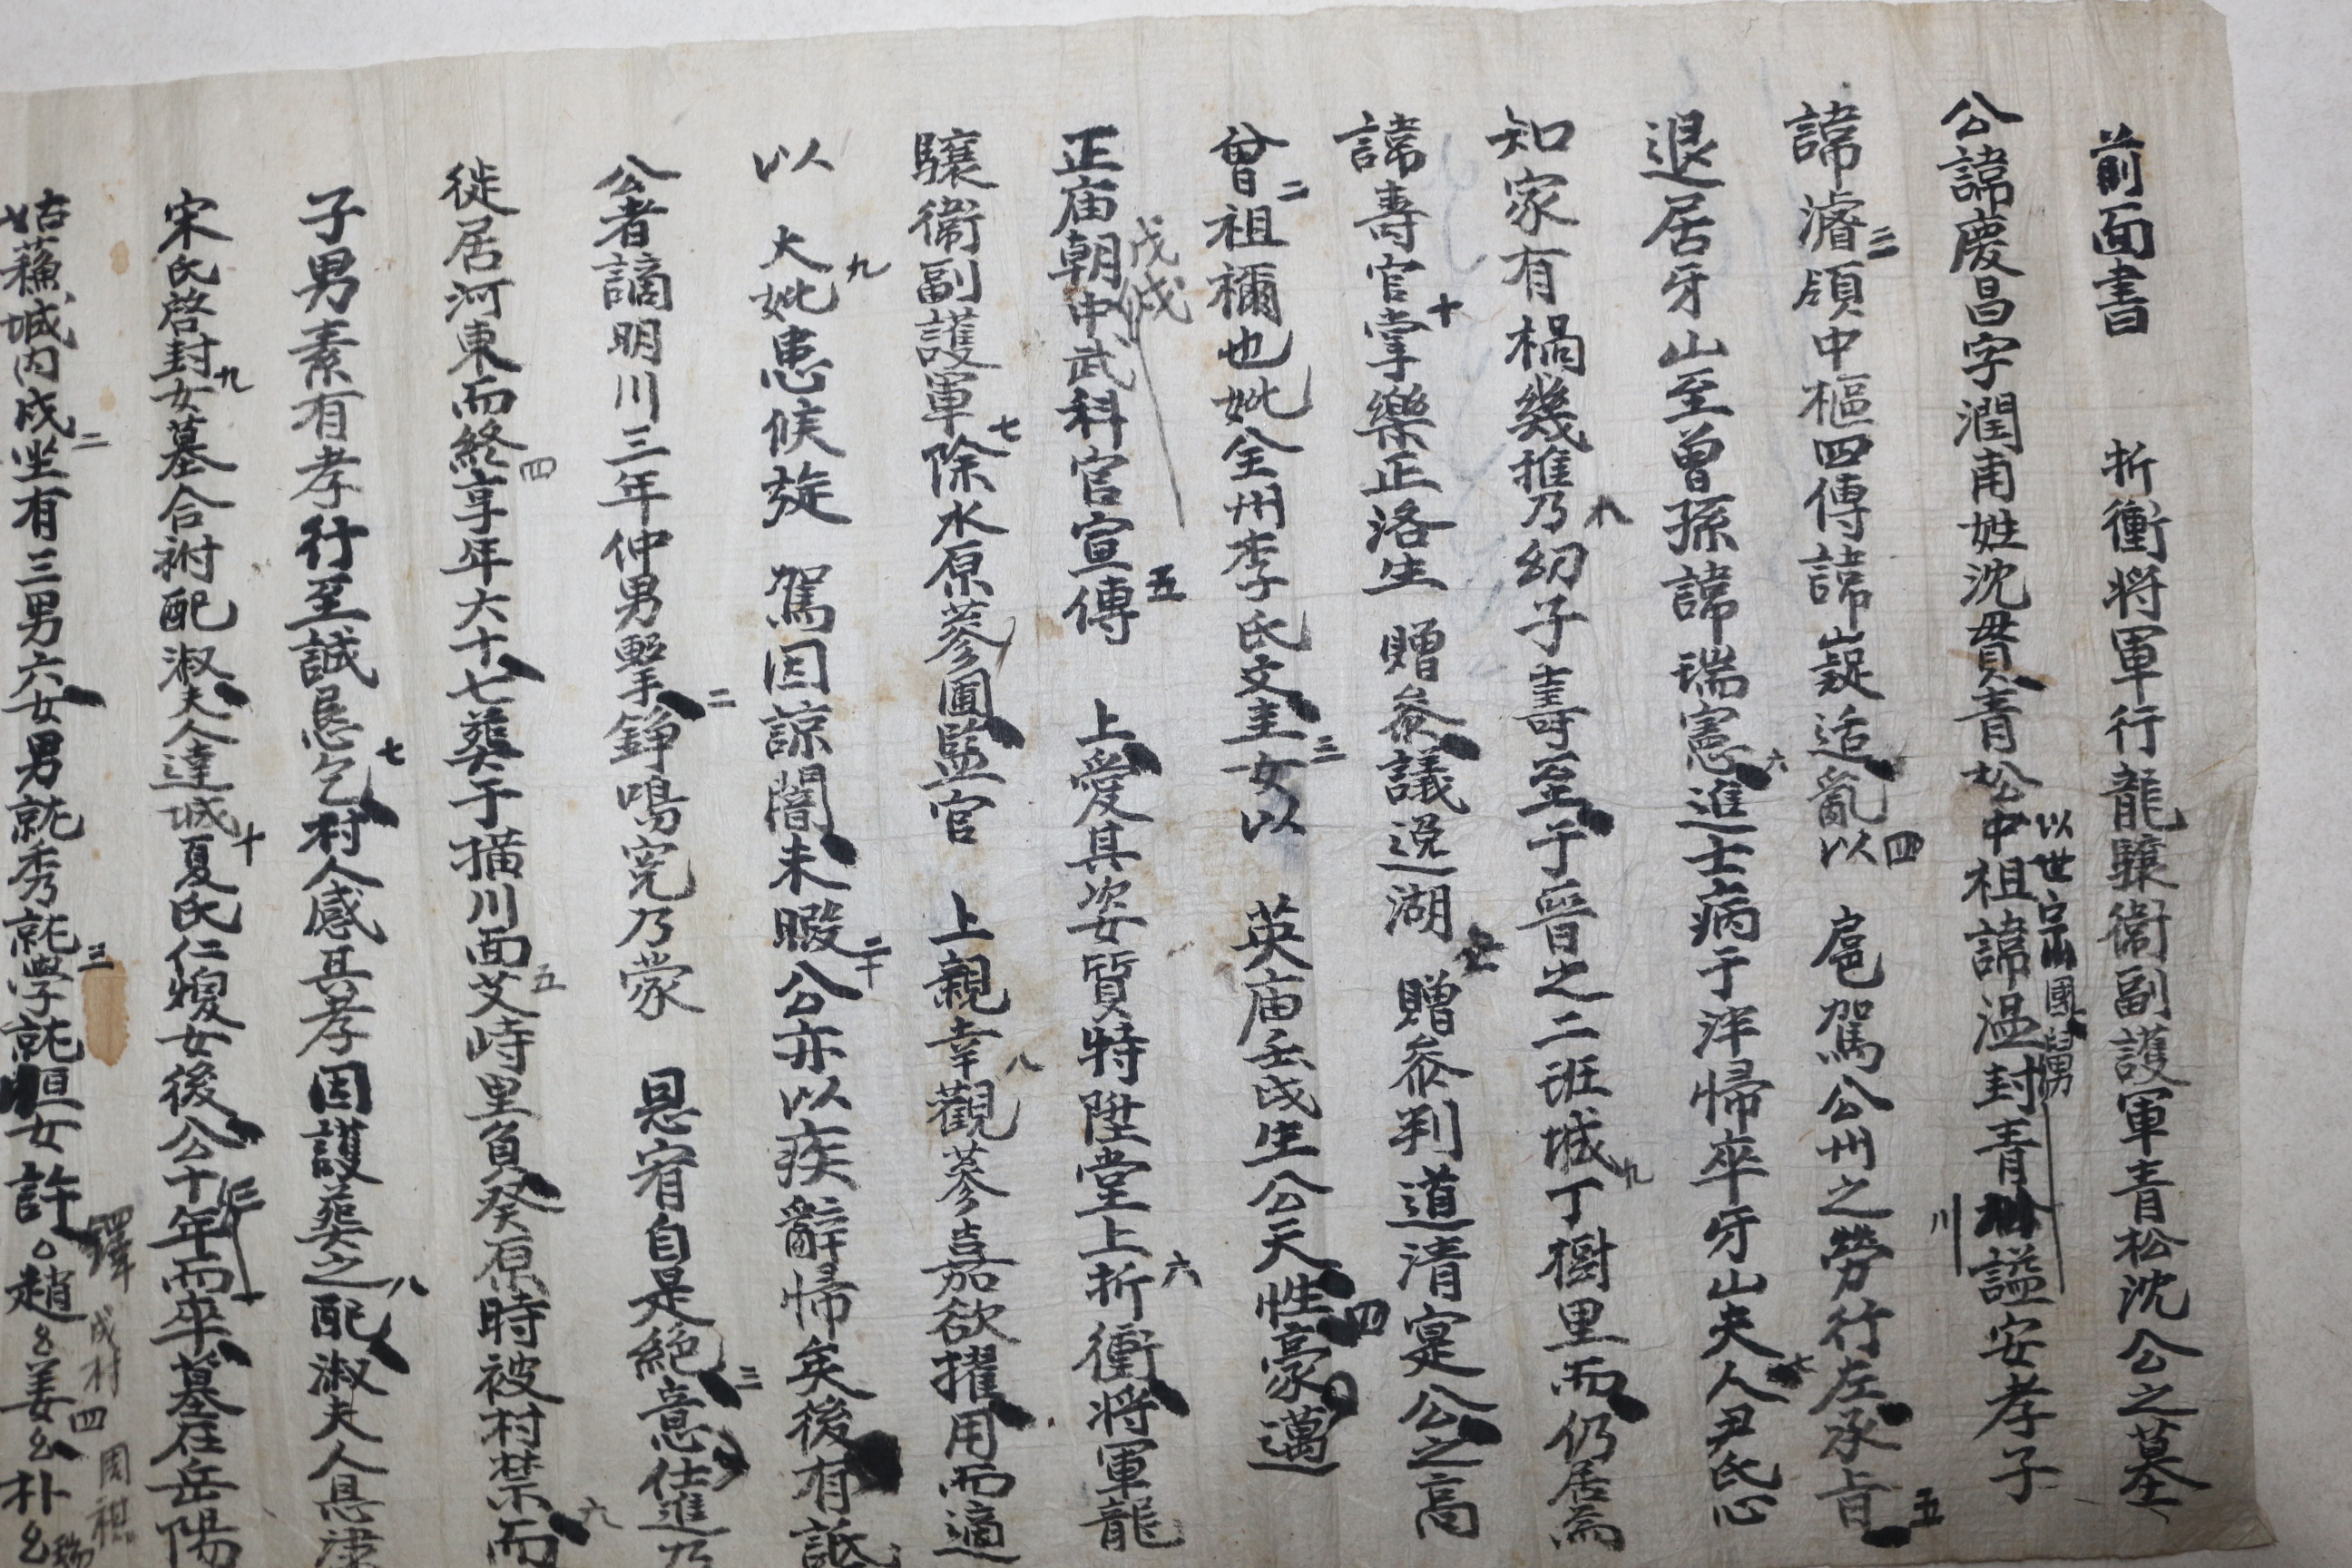 前面書 折衝将軍行龍驤衛副護軍青松沈公之墓
公諱慶昌字潤甫姓沈貫青松中祖諱温封青 謚安孝子
以世宗國舅
諱濬領中樞四傳諱嶷适亂以 扈駕公州之勞行左承旨
三 四 五
退居牙山至曾孫諱瑞憲進士病于泮帰卒牙山夫人尹氏心
六 七
知家有禍幾推乃幼子壽至于晉之二班城丁樹里而仍居焉
八 九
諱壽官掌樂正洛生 贈叅議逸湖 贈叅判道清寔公之高
十
曾祖禰也妣全州李氏文圭女以 英庙壬戌生公天性豪邁
二 三 四
正庙朝中武科官宣傳 上愛其姿質特陞堂上折衝将軍龍
戊戌 五 六
驤衛副護軍除水原蔘圃監官 上親幸觀蔘嘉欲擢用而適
七 八
以 大妣患候旋 駕因諒闇未暇公亦以疾辭帰矣後有詆
九 二十
公者謫明川三年仲男堅錚鳴寃乃蒙 恩宥自是絶意仕進乃
二 三
徙居河東而終享年六十七葬于横川面艾峙里負癸原時被村禁而
四 五 六
子男素有孝行至誠恳乞村人感其孝因護葬之配淑夫人恩津
七 八
宋氏啓封女墓合祔配淑夫人達城夏氏仁㮴女後公十年而卒墓在岳陽
九 十
姑蘓城内戌坐有三男六女男就秀就學就恒女許 趙 姜 朴
二 三 鐸 成村 四 周祺